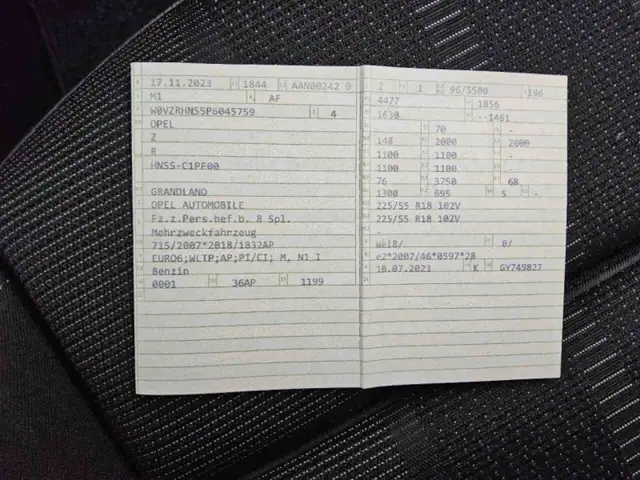 17.11.2023 1844 AAN00242 9
M1 AF
W0VZRHNS5P6045759 4
OPEL
Z
R
HNSS-C1PF00
GRANDLAND
OPEL AUTOMOBILE
Fz.z.Pers.bef.b. 8 Spl.
Mehrzweckfahrzeug
715/2007*2018/1832AP
EURO6;WLTP;AP;PI/CI; M, N1 I
Benzin
0001 36AP 1199
2 1 96/5500
4477 1856
1630 --1461
70 -
148 2000 2000
1100 1100 -
1100 1100 -
76 3750 68
1300 695 5 -
225/55 R18 102V
225/55 R18 102V
-
Weiß/ 0/
e2*2007/46*0597*28
10.07.2023 K GY749827